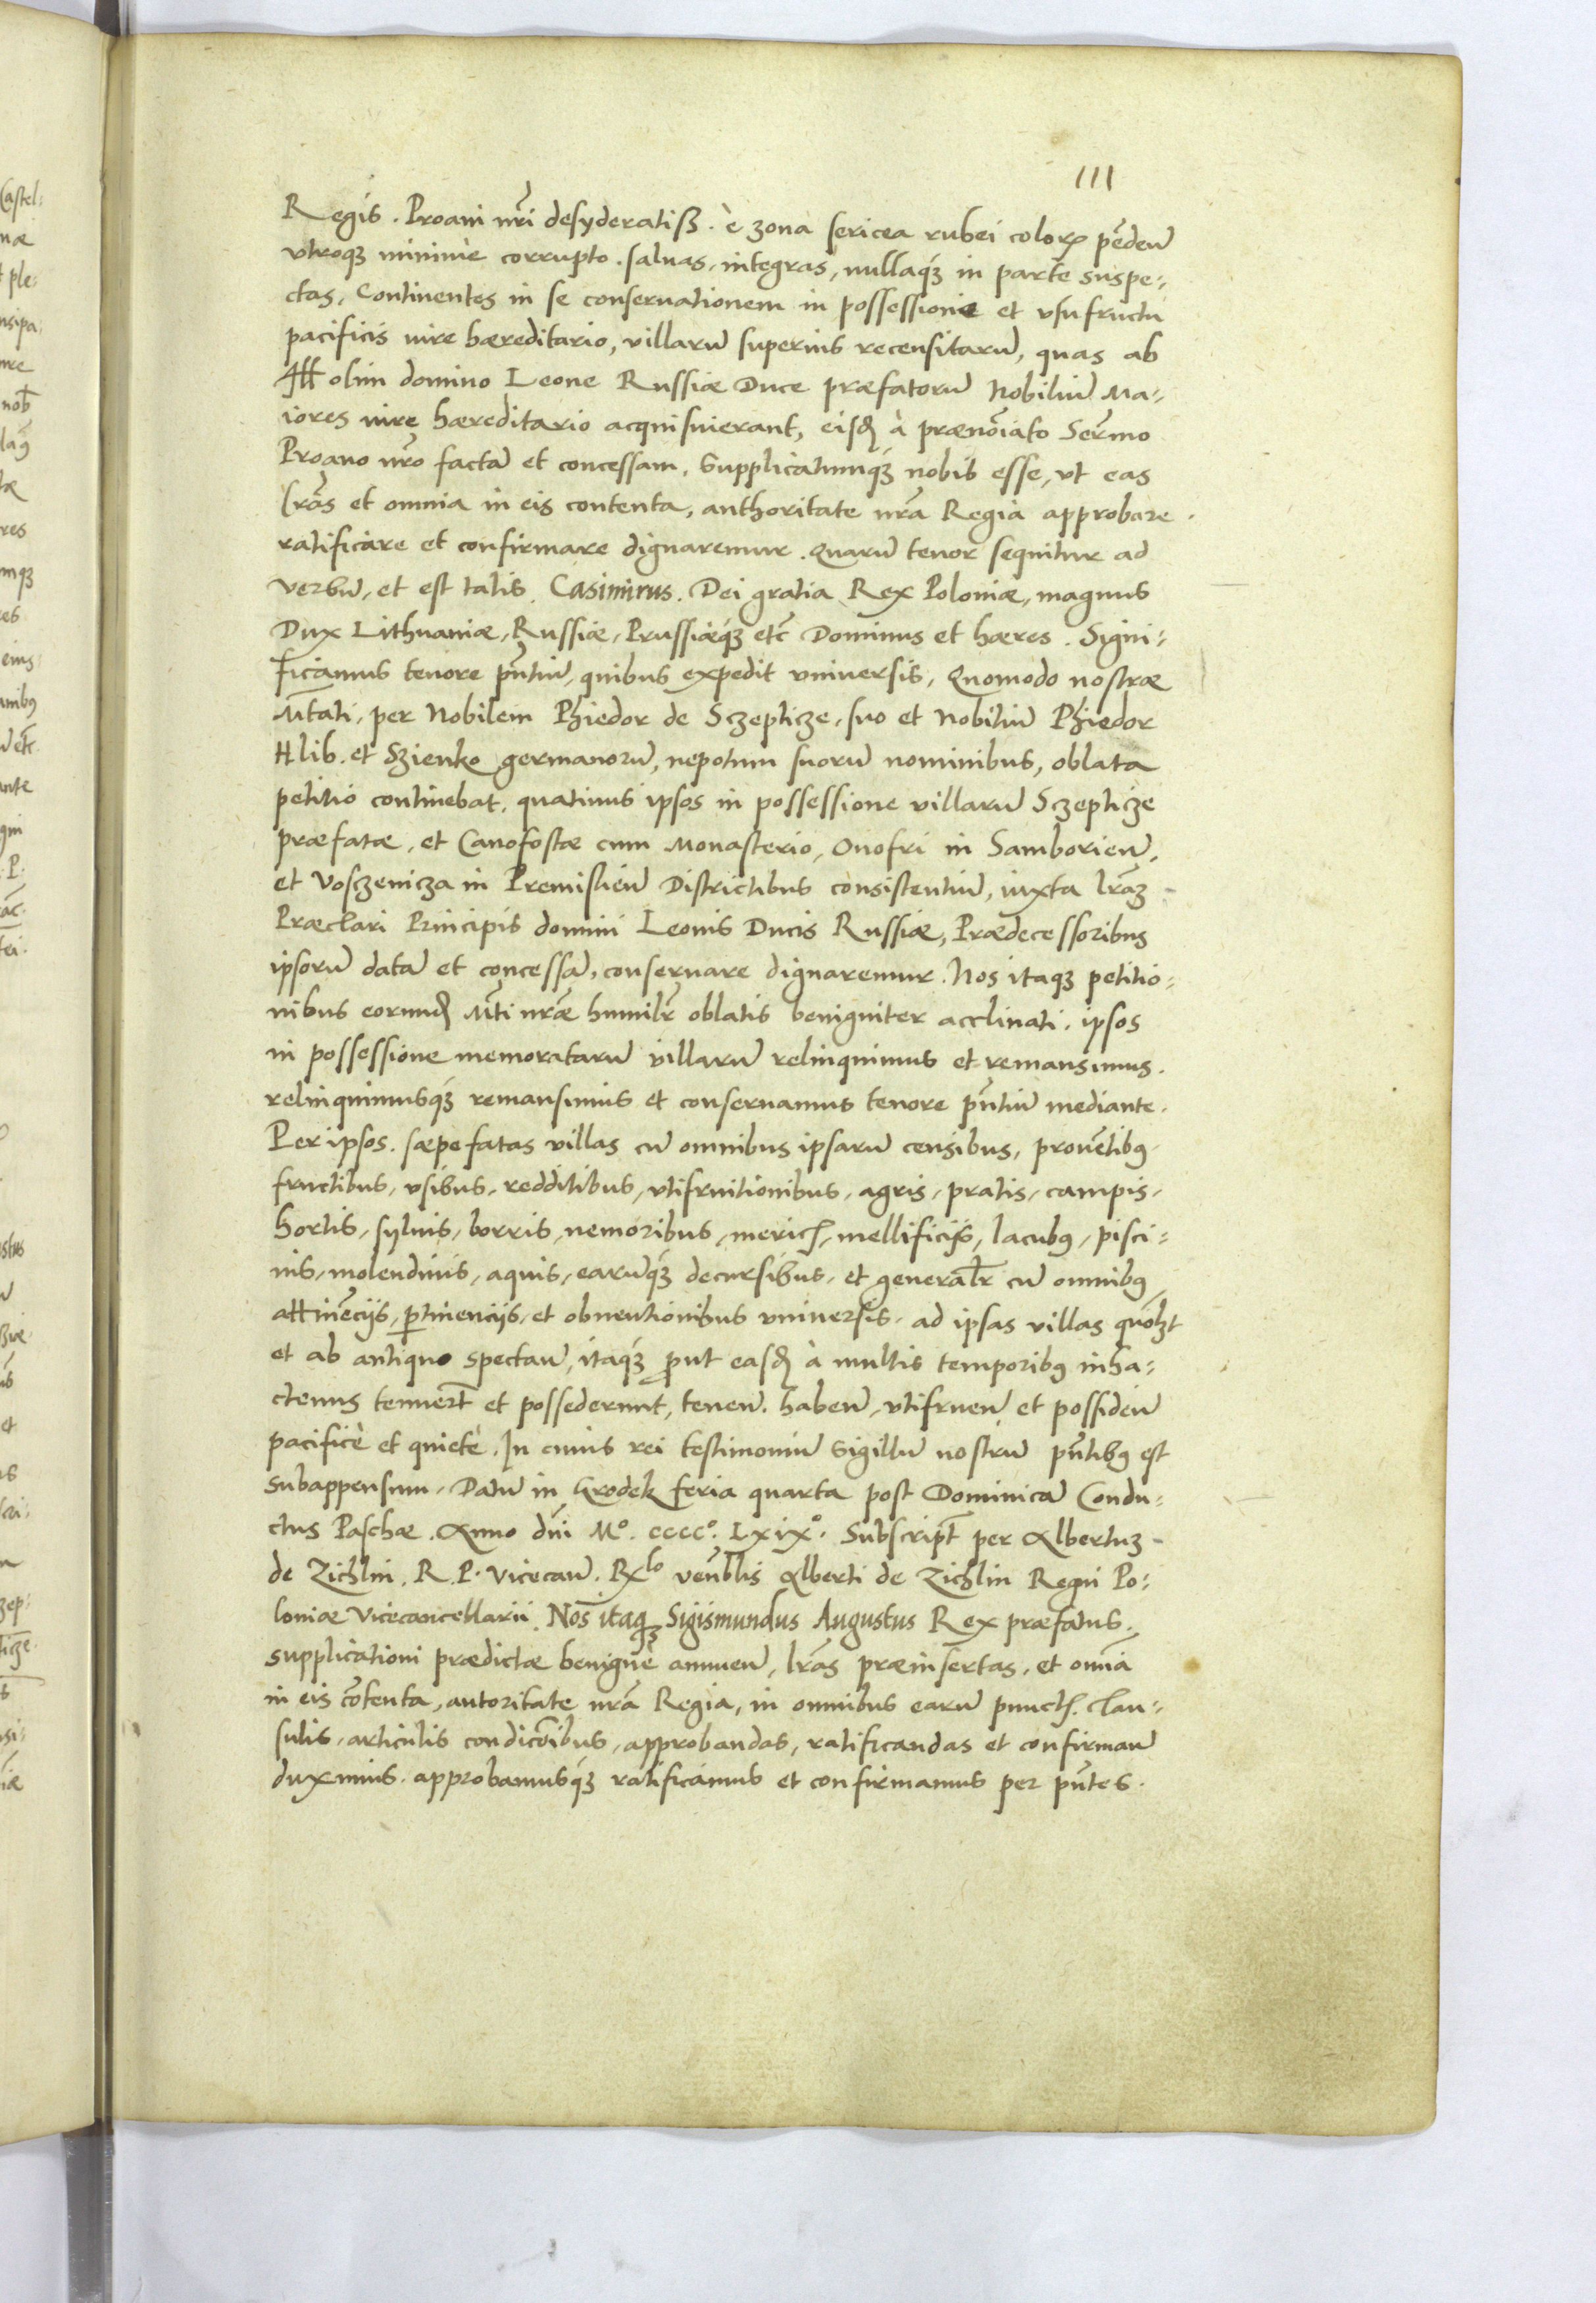 111
Regis. Proaui nr̃i desyderatiss. è zona sericea rubei colorꝭ pẽdeñ
vtroqꝫ minimè corrupto. saluas, integras, nullaqꝫ in parte suspe-
ctas, Continentes in se conseruationem in possessione et vsufructu
pacificis iure hæreditario, villarũ superius recensitarũ, quas ab
Illꝭ olim domino Leone Russiæ Duce præfatorũ Nobiliũ Ma-
iores iure hæreditario acquisuierant, eisdꝫ à prænoĩato Serm̃o
Proauo nr̃o factã et concessam. Supplicatumqꝫ nobis esse, vt eas
lr̃as et omnia in eis contenta, authoritate nr̃a Regia approbare.
ratificare et confirmare dignaremur. Quarũ tenor sequitur ad
verbũ, et est talis. Casimirus. Dei gratia Rex Poloniæ, magnus
Dux Lithuaniæ, Russiæ, Prussiæqꝫ etc̃ Dominus et hæres. Signi-
ficamus tenore pñtiũ, quibus expedit vniuersis, Quomodo nostræ
Mt̃ati, per Nobilem Phiedor de Sczepticze, suo et Nobiliũ Phiedor
Hlib. et Szienko germanorũ, nepotum suorũ nominibus, oblata
petitio continebat, quatinus ipsos in possessione villarũ Sczepticze
præfatæ, et Canofostæ cum Monasterio, Onofri in Samborieñ,
et Vosczenicza in Premislieñ Districtibus consistentiũ, iuxta lr̃aꝫ
Præclari Principis domini Leonis Ducis Russiæ, Prædecessoribus
ipsorũ datã et concessã, conseruare dignaremur. Nos itaqꝫ petitio-
nibus eorundꝫ Mt̃i nr̃æ humilr̃ oblatis benigniter acclinati. ipsos
in possessione memoratarũ villarũ relinquimus et remansimus.
relinquimusqꝫ remansimus et conseruamus tenore pñtiũ mediante.
Per ipsos. sæpefatas villas cũ omnibus ipsarũ censibus, prouẽtibꝰ
fructibus, vsibus, redditibus, vtifruitionibus, agris, pratis, campis,
hortis, syluis, borris, nemoribus, mericꝭ, mellificijs, lacubꝰ, pisci-
nis, molendinis, aquis, earũqꝫ decursibus, et generalr̃ cũ omnibꝰ
attinẽcijs, ꝑtinencijs, et obuentionibus vniuersis, ad ipsas villas quõlꝫt
et ab antiquo spectañ, itaqꝫ prout easdꝫ à multis temporibꝰ inha-
ctenus tenuert̃ et possederunt, teneñ. habeñ, vtifrueñ et possideñ
pacificè et quietè. In cuius rei testimoniũ Sigillũ nostrũ pñtibꝰ est
subappensum. Datũ in Grodek feria quarta post Dominicã Condu-
ctus Paschæ. Anno dñi M°. CCCC°. Lxix°. Subscript̃ per Albertuꝫ
de Zichlin. R. P. vicecañ. Rꝭlo veñblis Alberti de Zichlin Regni Po-
loniæ Vicecancellarii. Nos itaqꝫ Sigismundus Augustus Rex præfatus.
supplicationi prædictæ benignè annueñ, lr̃as præinsertas, et omĩa
in eis cõtenta, autoritate nr̃a Regia, in omnibus earũ punctꝭ. clau-
sulis, articulis condicõibus, approbandas, ratificandas et confirmañ
duximus. approbamusqꝫ ratificamus et confirmamus per pñtes.